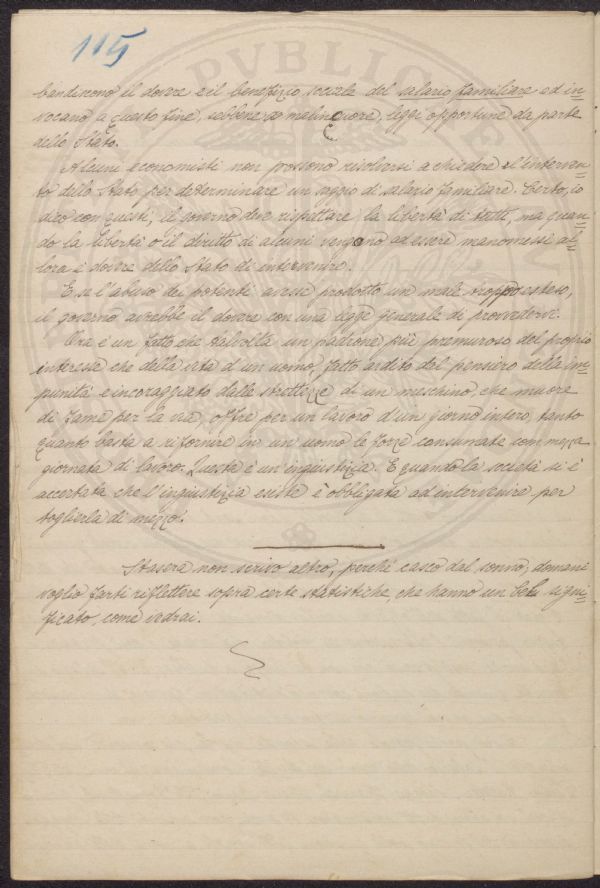 115
bandiscono il dovere e il benefizio sociale del salario familiare ed in-
vocano, a questo fine, sebbene so malincuore, leggi opportune da parte
dello Stato.
Alcuni economisti non possono risolversi a chiedere l'interven-
to dello Stato per determinare un saggio di salario familiare. Certo, io
dico con questi, il governo deve rispettare la libertà di tutti, ma quan-
do la libertà o il diritto di alcuni vengono ad essere manomessi al-
lora è dovere dello Stato di intervenire.
E se l'abuso dei potenti avesse prodotto un male troppo esteso,
il governo avrebbe il dovere con una legge generale di provvedervi.
Ora è un fatto che talvolta un padrone più premuroso del proprio
interesse che della vita d'un uomo, fatto ardito dal pensiero della im-
punità e incoraggiato dalle strettezze di un meschino, che muore
di fame per la via, offre per un lavoro d'un giorno intero, tanto
quanto basta a rifornire in un uomo le forze consumate con mezza
giornata di lavoro. Questa è un'ingiustizia. E quando la società si è
accertata che l'ingiustizia esiste è obbligata ad intervenire per
toglierla di mezzo.
Stasera non scrivo altro, perché casco dal sonno; domani
voglio farti riflettere sopra certe statistiche, che hanno un bel signi-
ficato, come vedrai.